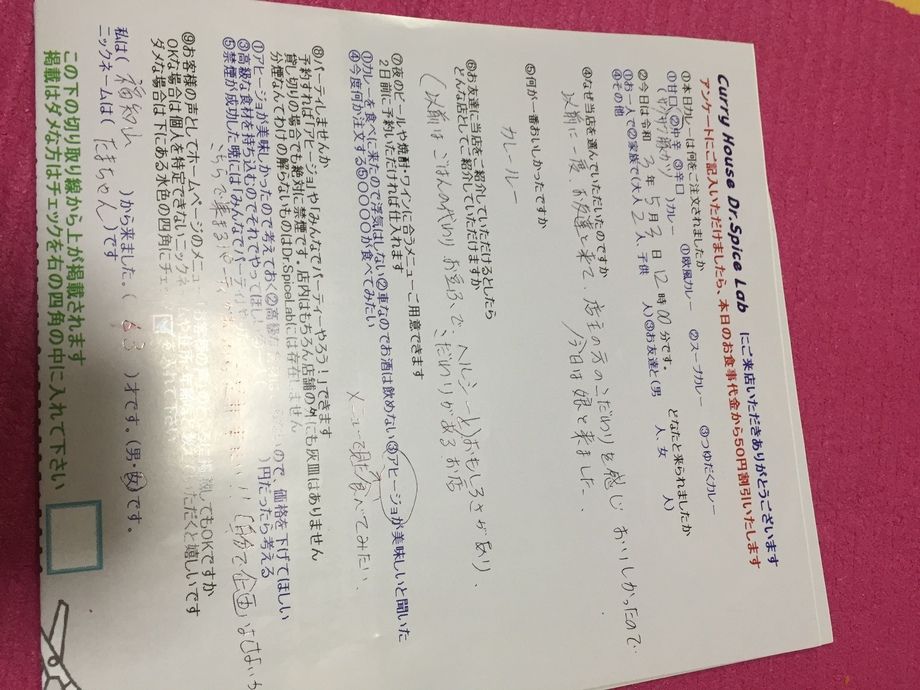 Curry House Dr.Spice Lab にご来店いただきありがとうございます
アンケートにご記入いただけましたら、本日のお食事代金から50円割引いたします
①本日カレーは何をご注文されましたか
①甘口 ②中辛 ③辛口 カレー ①欧風カレー ②スープカレー ③つゆだくカレー
②今日は令和 3 年 5 月 3 日 12 時 00 分です。 どなたと来られましたか
①お一人で②家族で(大人 2 人 子供 人)③お友達と(男 人、女 人)
④その他
④なぜ当店を選んでいただいたのですか
以前に一度、お友達と来て、店主の方のこだわりを感じ おいしかったので…
今日は娘と来ました。
⑤何が一番おいしかったですか
カレールー
⑥お友達に当店をご紹介していただけるとしたら
どんな店としてご紹介していただけますか
(以前は ごはんの代わり お豆ふ、で、ヘルシーと)おもしろさがあり、
こだわりがあるお店
⑦夜のビールや焼酎・ワインに合うメニューご用意できます
2日前に予約いただければ仕入れます
①カレーを食べに来たので浮気はしない②車なのでお酒は飲めない③アヒージョが美味しいと聞いた
④今度何か注文する⑤〇〇〇〇が食べてみたい
メニューで見た 食べてみたい、
⑧パーティしませんか
予約すれば「アヒージョ」や「みんなでパーティーやろう!」できます
貸し切りの場合でも絶対に禁煙です・店内はもちろん店舗の外にも灰皿はありません
分煙なんてわけの解らないものはDr.SpiceLabには存在しません
①アヒージョが美味しかったので考えておく②高級な ので、価格を下げてほしい
③高級な食材を持ち込むのでそれでやってほしい )円だったら考える
⑤禁煙が成功した暁には「みんなでパーティ
自分で企画はしない
⑨お客様の声としてホームページのメニュ してもOKですか
OKな場合は個人を特定できないニックネ ただくと嬉しいです
ダメな場合は下にある水色の四角にチェ
私は( 福知山 )から来ました。( 63 )才です。(男・女)です。
ニックネームは( たまちゃん )です
この下の切り取り線から上が掲載されます
掲載はダメな方はチェックを右の四角の中に入れて下さい